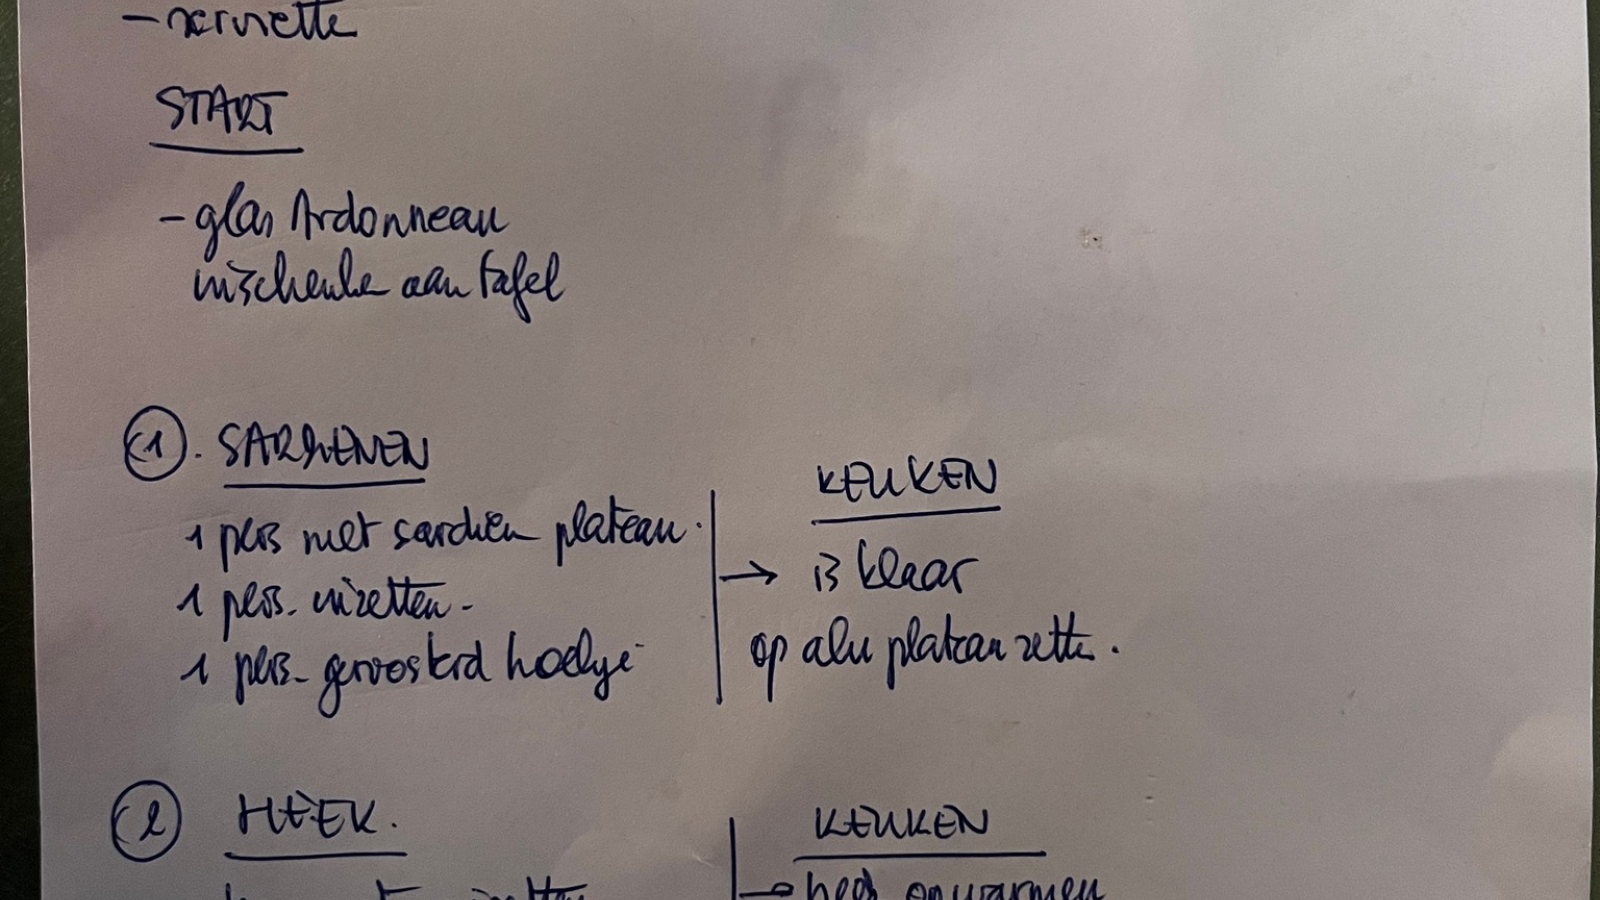 - serviette
START
- glas Ardonneau
inschenke aan tafel
1. SARDIENEN
1 pers met sardien plateau.
1 pers. inzetten -
1 pers. geroosterd hoekje
KEUKEN
→ is klaar
op alu plateau zette.
2 HÈEK.
KEUKEN
→ opwarmen